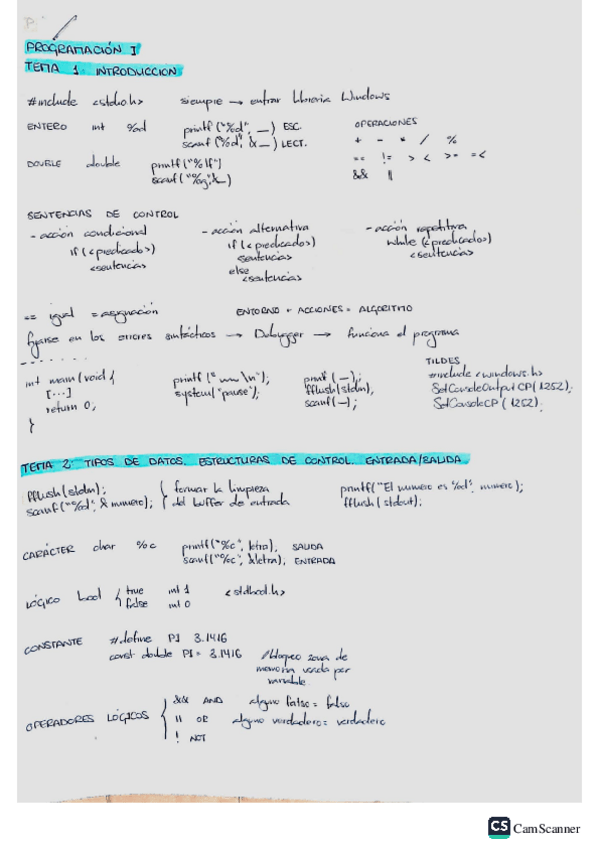 PROGRAMACIÓN I
TEMA 1: INTRODUCCION
#include <stdio.h> siempre → entrar librería Windows
ENTERO int %d printf("%d", __) ESC. OPERACIONES
scanf("%d", &__) LECT. + - * / %
DOUBLE double printf("%lf") == != > < >= =<
scanf("%g", &__) && ||
SENTENCIAS DE CONTROL
- acción condicional - acción alternativa - acción repetitiva
if (<predicado>) if (<predicados>) while (<predicados>)
<sentencias sentencias> <sentencias>
else
<sentencias>
== igual = asignación ENTORNO + ACCIONES = ALGORITMO
fijarse en los errores sintácticos → Debugger → funciona el programa
TILDES
int main(void{ printf("~~ \n"); printf(—); #include <windows.h>
[...] system("pause"); fflush(stdin), SetConsoleOutputCP(1252);
return 0; scanf(—); SetConsoleCP(1252);
}
TEMA 2: TIPOS DE DATOS. ESTRUCTURAS DE CONTROL. ENTRADA/SALIDA
fflush(stdin); { forzar la limpieza printf("El numero es %d", numero);
scanf("%d", & numero); del buffer de entrada fflush(stdout);
CARÁCTER char %c printf("%c", letra), SALIDA
scanf("%c", &letra); ENTRADA
LÓGICO bool { true int 1 <stdbool.h>
false int 0
CONSTANTE #define PI 3.1416
const double PI = 3.1416 //bloqueo zona de
memoria usada por
variable
&& AND alguno falso = falso
OPERADORES LÓGICOS { || OR alguno verdadero = verdadero
! NOT
CS CamScanner